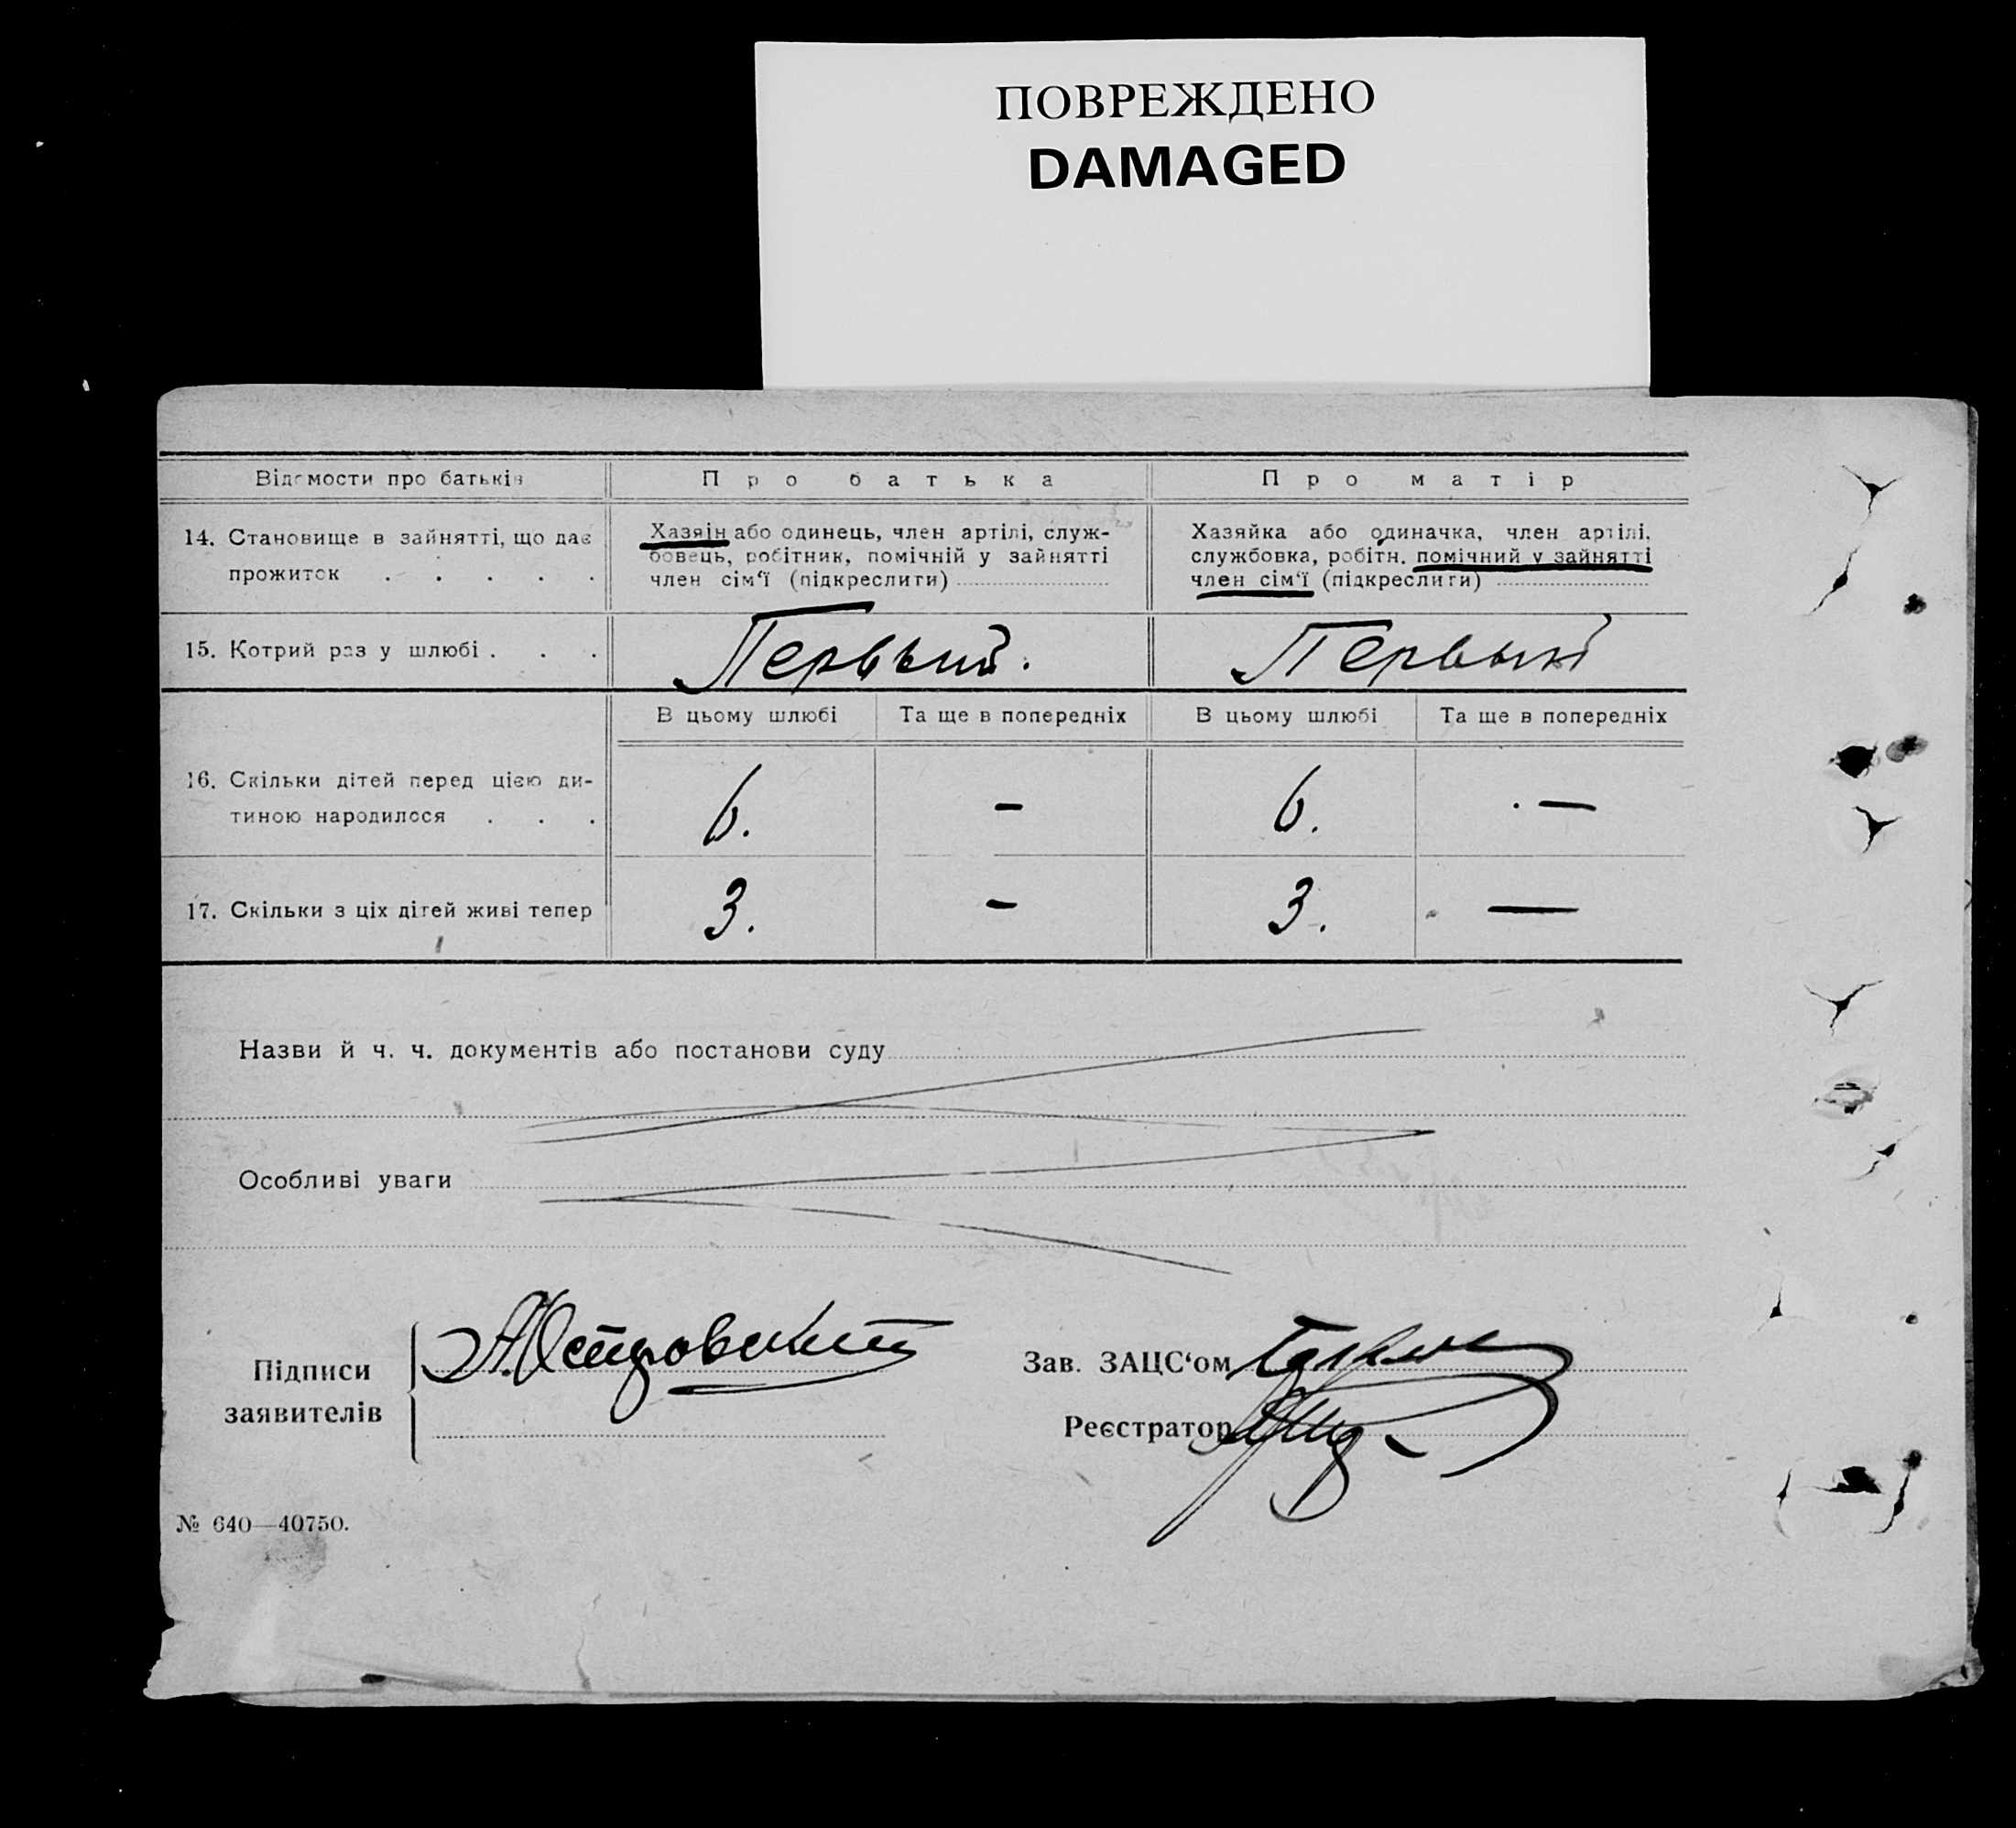 ПОВРЕЖДЕНО
DAMAGED
Відомости про батьків
Про батька
Про матір
14. Становище в зайнятті, що дає
прожиток . . . . .
Хазяін або одинець, член артілі, служ-
бовець, робітник, помічній у зайнятті
член сім‘ї (підкреслити)
Хазяйка або одиначка, член артілі,
службовка, робітн. помічний у зайнятті
член сім‘ї (підкреслити)
15. Котрий раз у шлюбі . . .
Первый.
Первый
В цьому шлюбі
Та ще в попередніх
В цьому шлюбі
Та ще в попередніх
16. Скільки дітей перед цією ди-
тиною народилося . . .
6.
—
6.
—
17. Скільки з ціх дітей живі тепер
3.
—
3.
—
Назви й ч. ч. документів або постанови суду
Особливі уваги
Підписи
заявителів
АОстровский
Зав. ЗАЦС‘ом
Реєстратор
№ 640—40750.